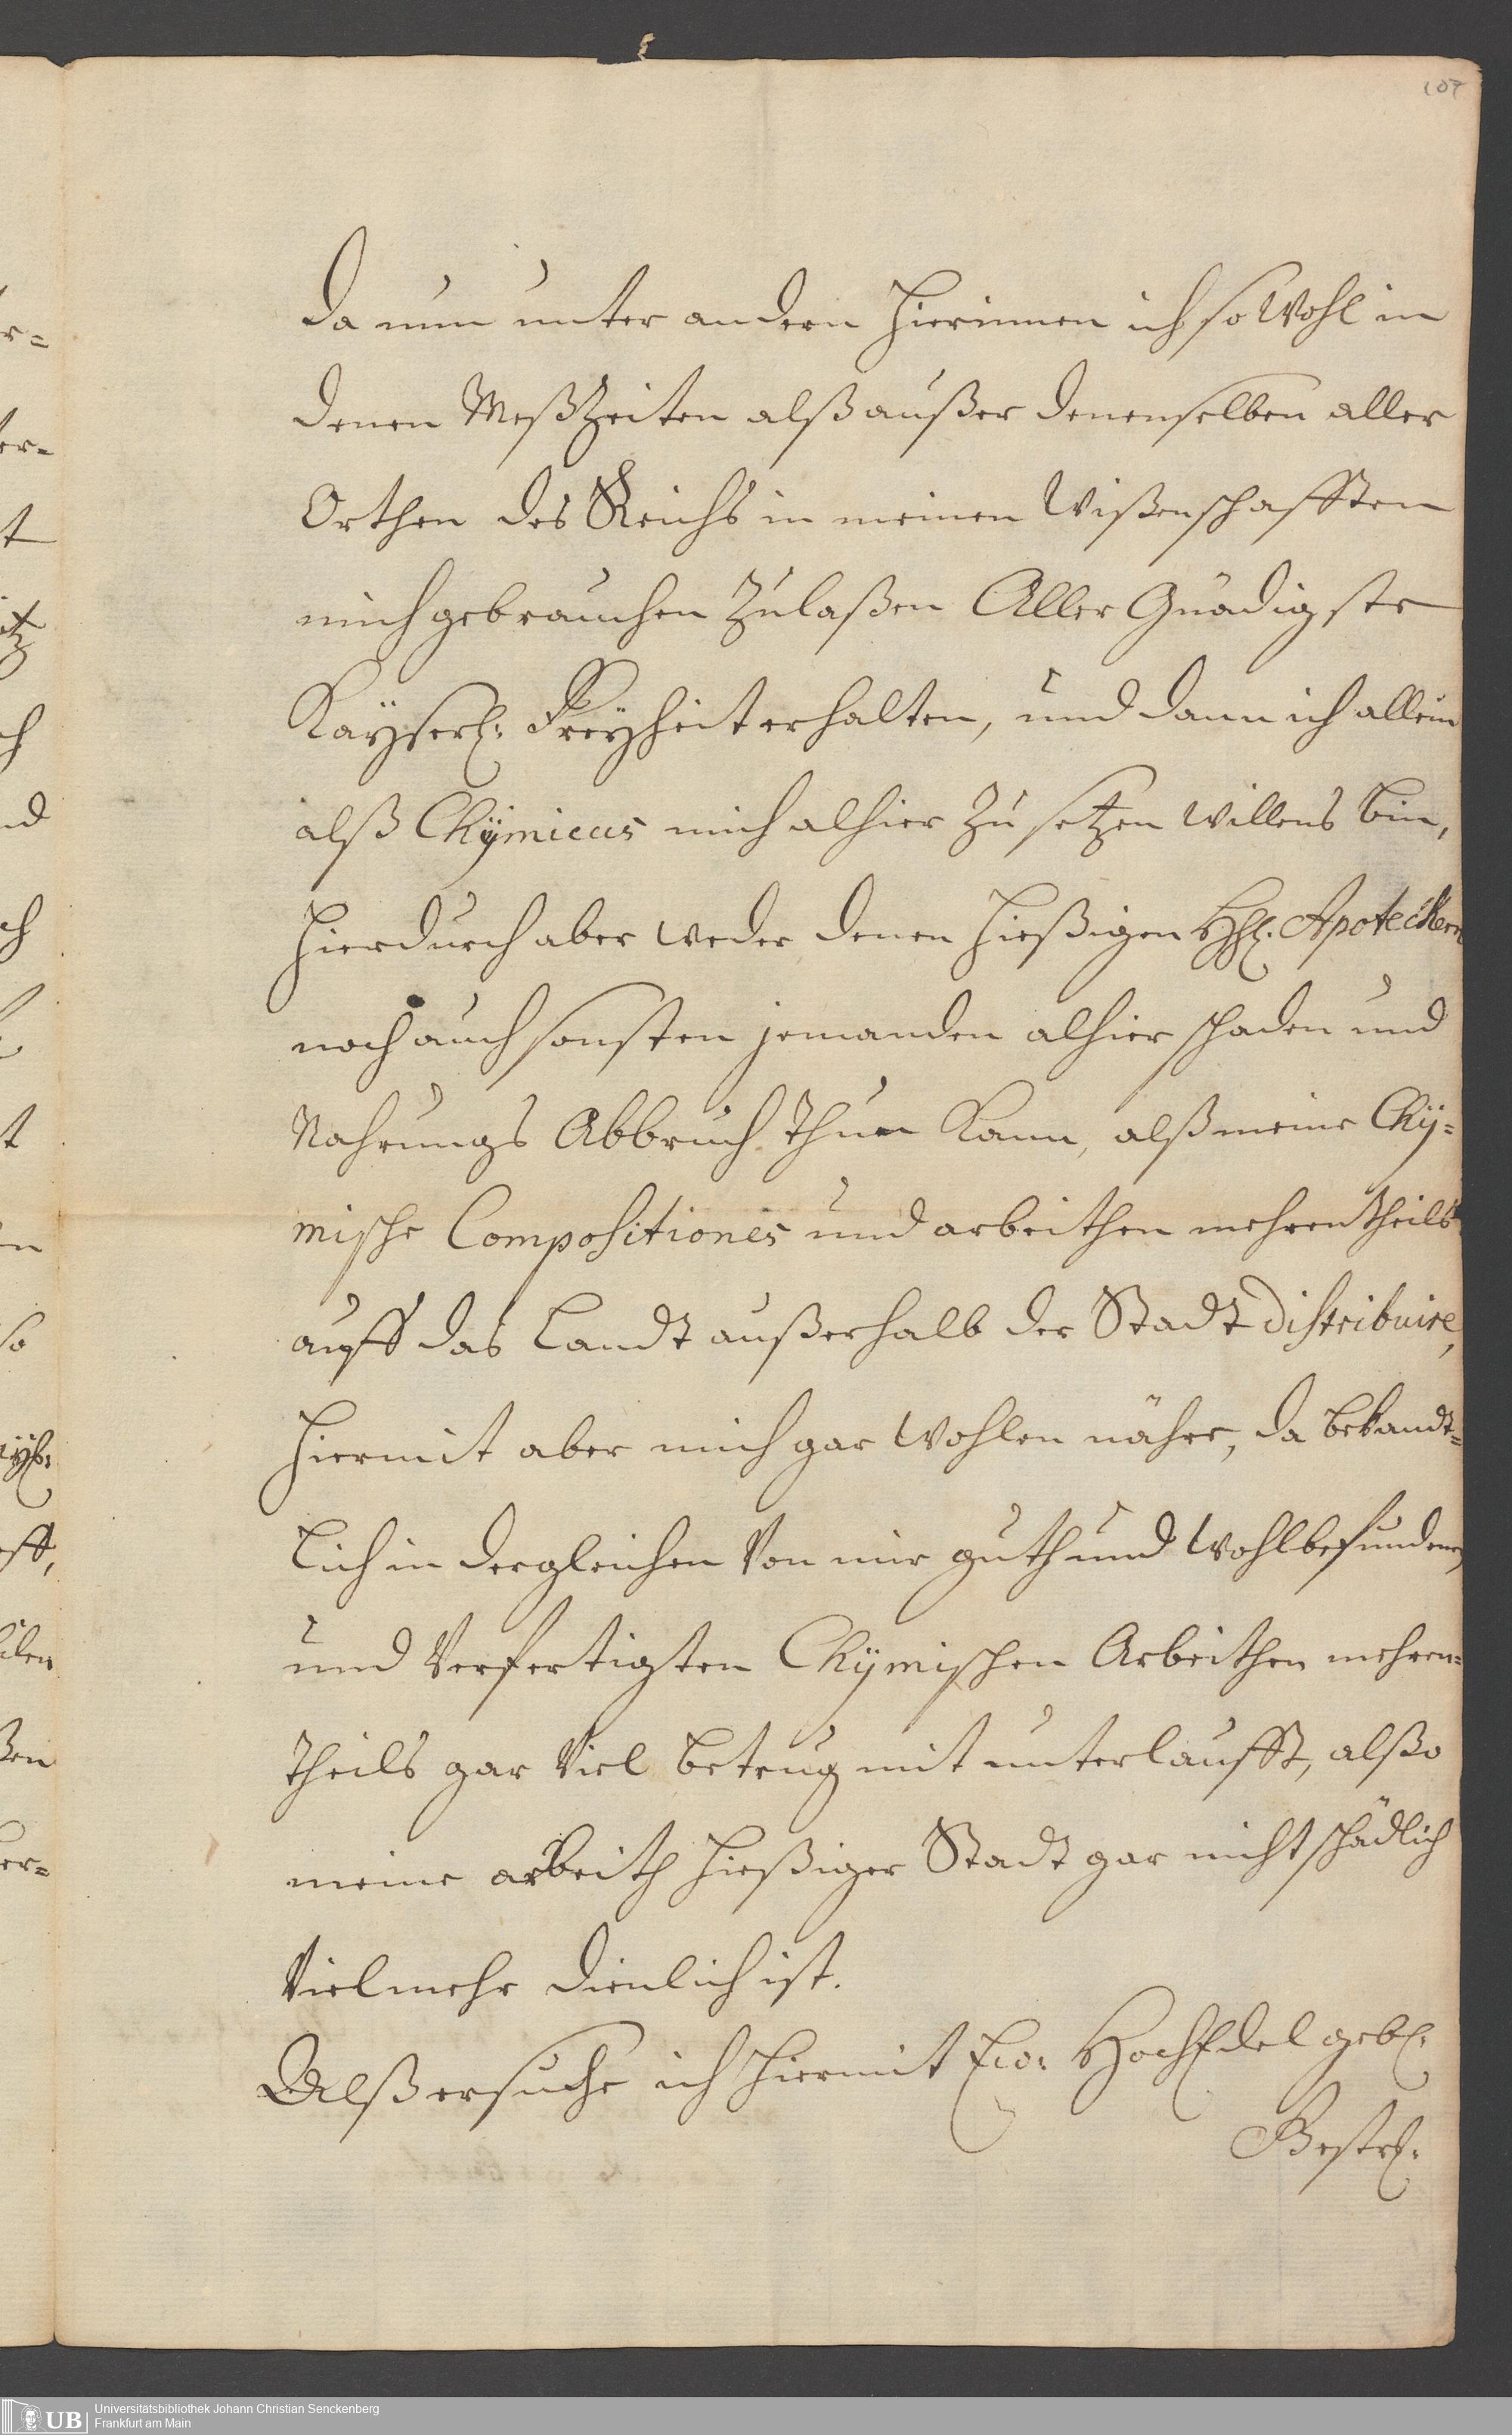 107
Da nun unter andern hierinnen ich so Wohl in
denen Meßzeiten alß außer denenselben aller
Orthen des Reichs in meinen Wißenschafften
mich gebrauchen Zulaßen Aller Gnädigste
Kayserl: Freyheit erhalten, und dann ich allein
alß Chÿmicus mich alhier Zu setzen Willens bin,
hierdurch aber weder denen hießigen HH: Apoteckern
noch auch sonsten jemanden alhier schaden und
Nahrungs Abbruch thun kann, alß meine Chÿ=
mische Compositiones und arbeithen mehrentheils
auff das Landt außerhalb der Stadt distribuire,
hiermit aber mich gar Wohlen nähre, da bekandt=
lich in dergleichen Von mir guth und Wohlbefundenen
und Verfertigten Chÿmischen Arbeithen mehren=
theils gar Viel betrug mit unterlaufft, alßo
meine arbeith hießiger Stadt gar nicht schädlich
Vielmehr dienlich ist.
Alß ersuche ich hiermit Ew: HochEdelgeb:
Gestr:
r=
er=
t
itz
ch
nd
ch
t
en
so
eff,
ilen
ßen
er=
Universitätsbibliothek Johann Christian Senckenberg
Frankfurt am Main
UB